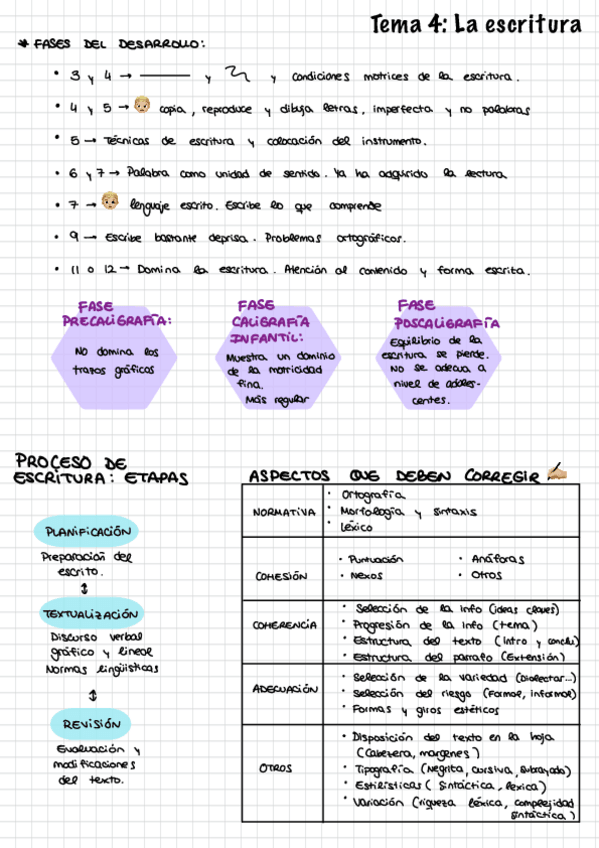 Tema 4: La escritura
* FASES DEL DESARROLLO:
• 3 y 4 → —— y y condiciones motrices de la escritura.
• 4 y 5 → copia, reproduce y dibuja letras. imperfecta y no palabras
• 5 → Técnicas de escritura y colocación del instrumento.
• 6 y 7 → Palabra como unidad de sentido. Ya ha adquirido la lectura
• 7 → lenguaje escrito. Escribe lo que comprende
• 9 → Escribe bastante deprisa. Problemas ortográficos.
• 11 o 12 → Domina la escritura. Atención al contenido y forma escrita.
FASE
PRECALIGRAFÍA:
No domina los
trazos gráficos
FASE
CALIGRAFÍA
INFANTIL:
Muestra un dominio
de la motricidad
fina.
Más regular
FASE
POSCALIGRAFÍA
Equilibrio de la
escritura se pierde.
No se adecua a
nivel de adoles-
centes.
PROCESO DE
ESCRITURA: ETAPAS
PLANIFICACIÓN
Preparación del
escrito.
↕
TEXTUALIZACIÓN
Discurso verbal
gráfico y lineal
Normas lingüísticas
↕
REVISIÓN
Evaluación y
modificaciones
del texto.
ASPECTOS QUE DEBEN CORREGIR
NORMATIVA
• Ortografía
• Morfología y sintaxis
• Léxico
COHESIÓN
• Puntuación
• Anáforas
• Nexos
• Otros
COHERENCIA
• Selección de la info (ideas claves)
• Progresión de la info (tema)
• Estructura del texto (Intro y conclu)
• Estructura del parrafo (Extensión)
ADECUACIÓN
• Selección de la variedad (Dialectar...)
• Selección del riesgo (Formal, informal)
• Formas y giros estéticos
OTROS
• Disposición del texto en la hoja
(Cabezera, margenes)
• Tipografía (Negrita, cursiva, subrayado)
• Estilísticas (Sintáctica, lexica)
• Variación (riqueza léxica, complejidad
sintáctica)